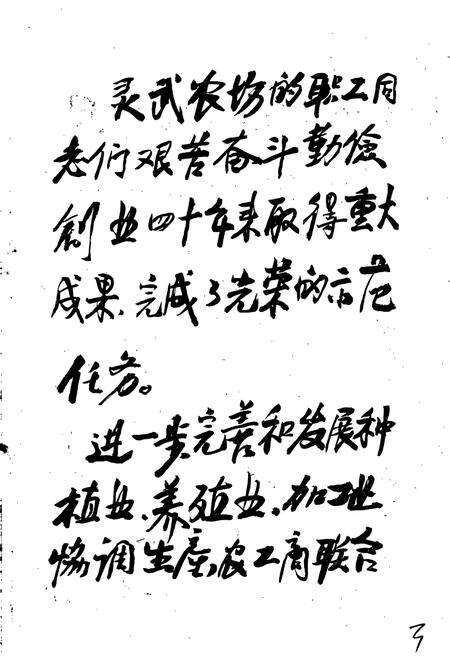 灵武农场的职工同
志们艰苦奋斗勤俭
創业四十年来取得重大
成果、完成了光荣的示范
任务。
进一步完善和发展种
植业、养殖业、加工业
协调生产、农工商联合
3